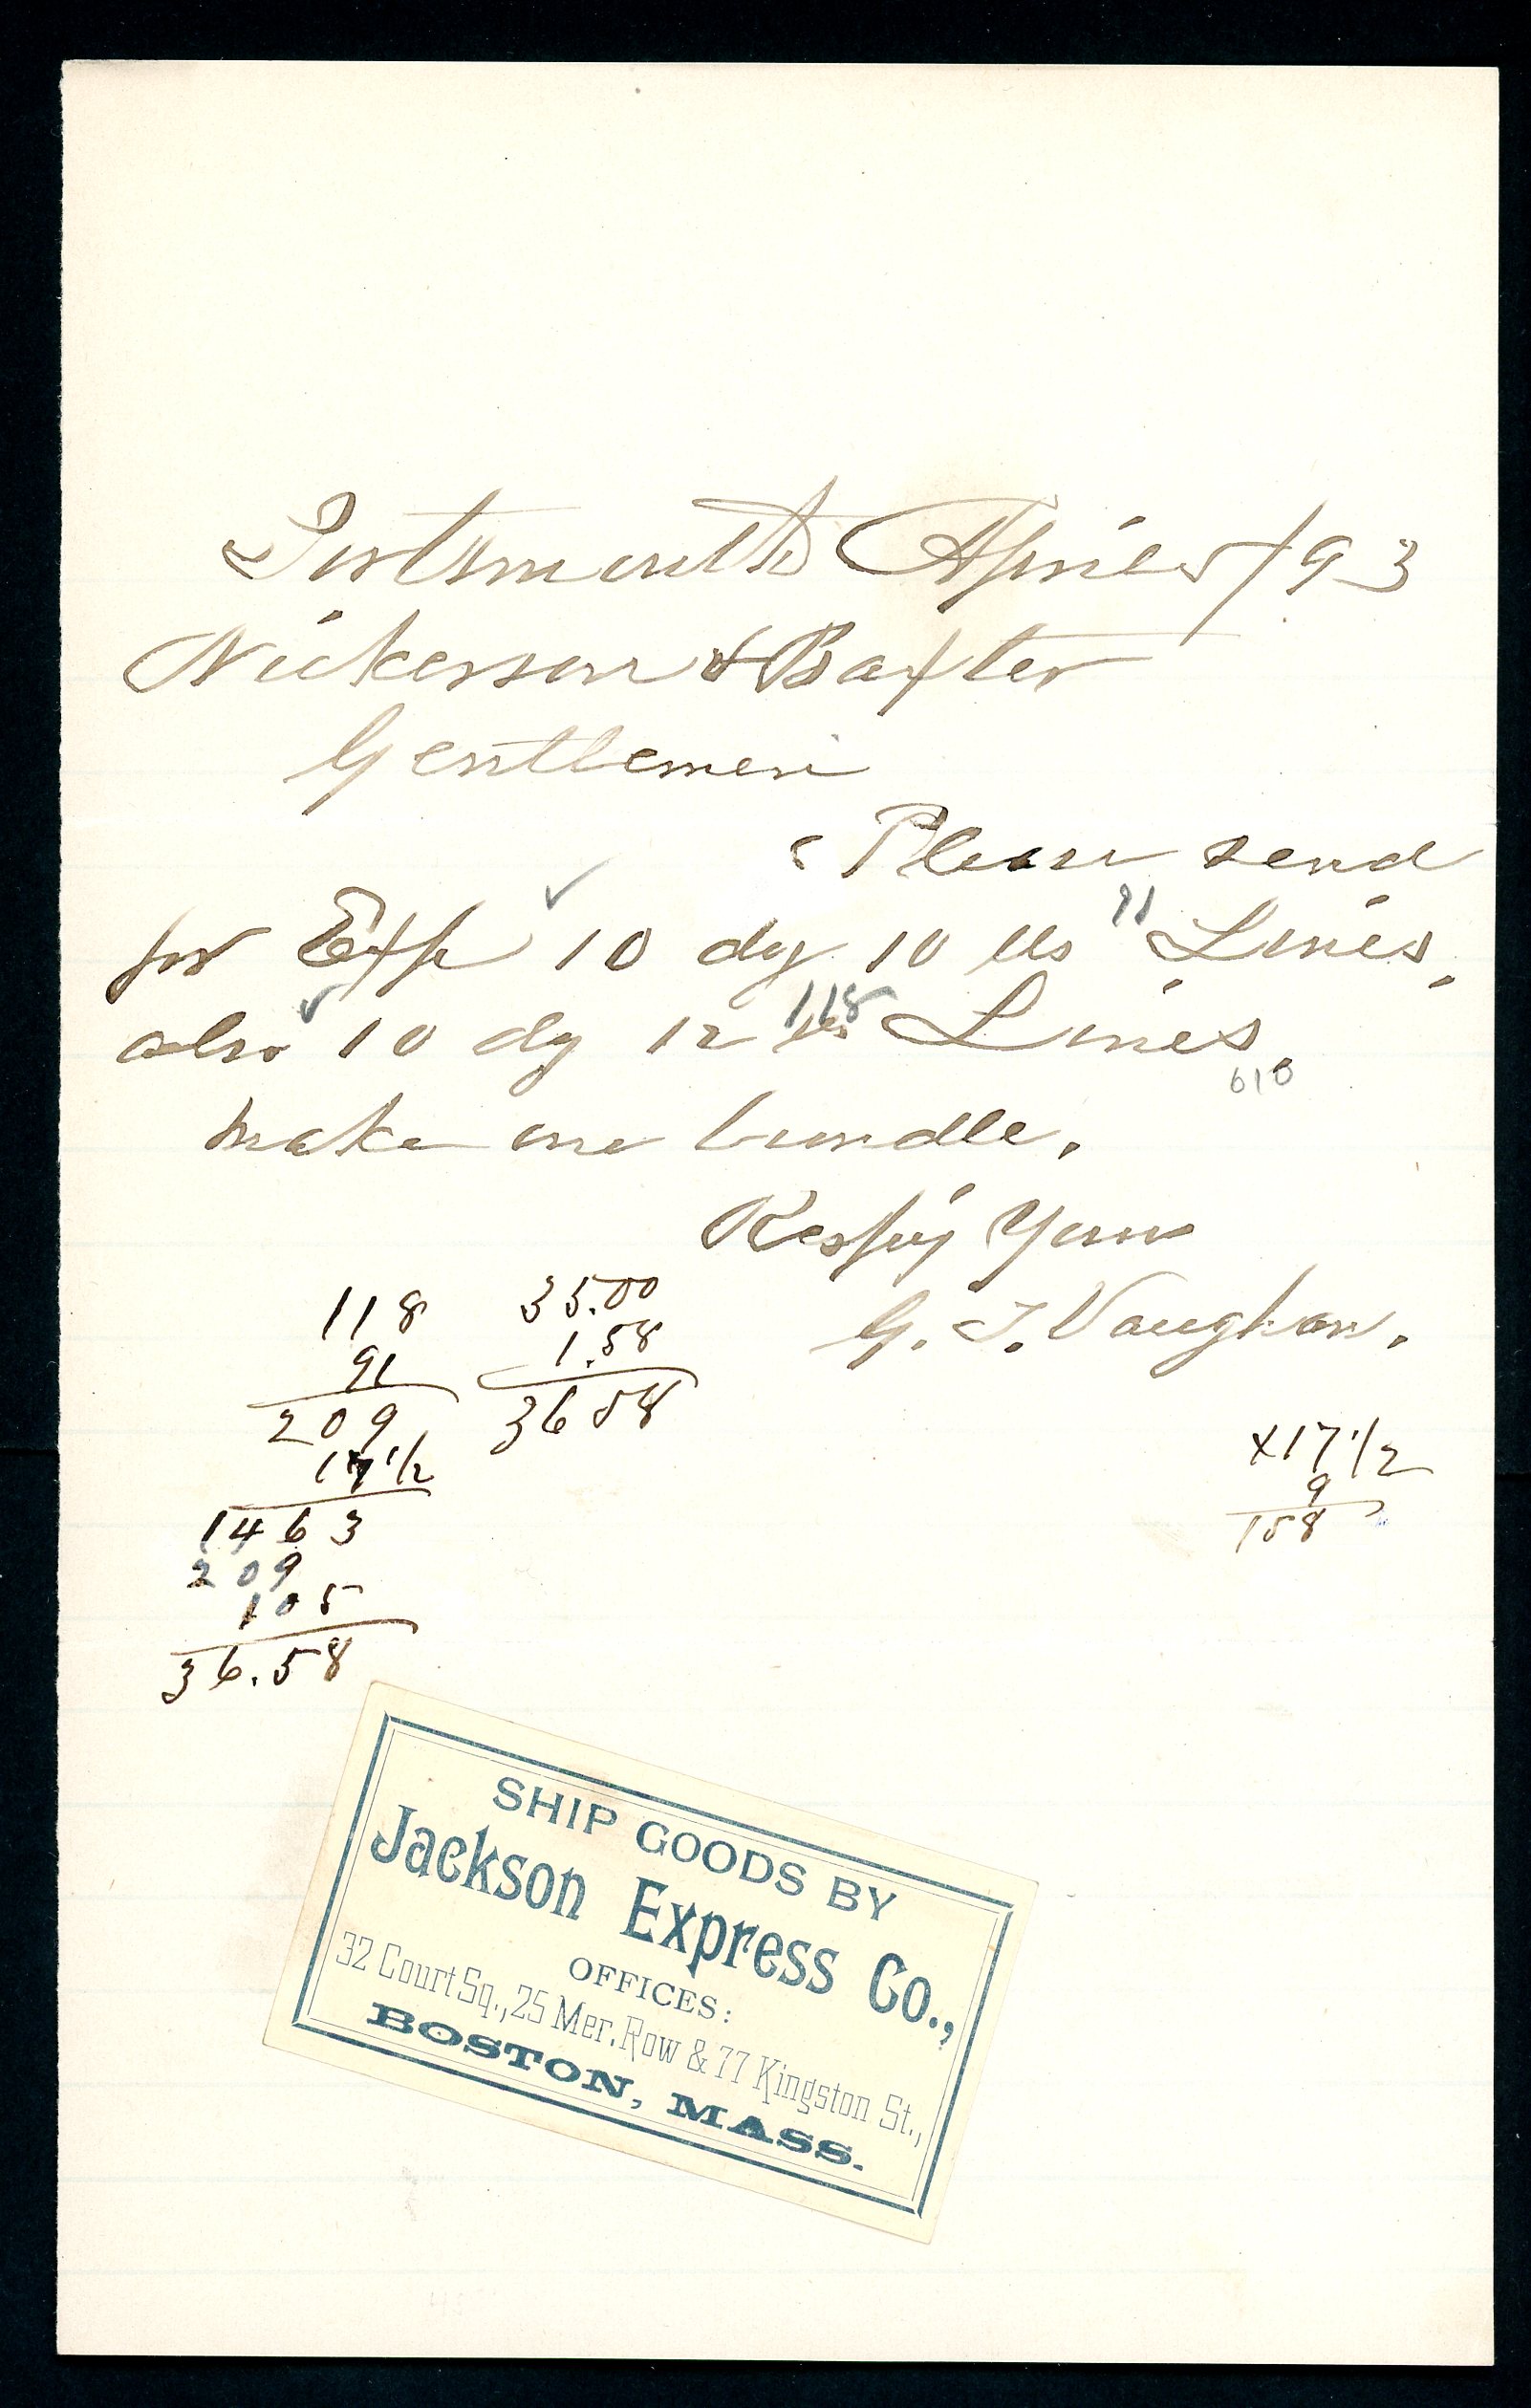 Portsmouth April 5/93
Nickerson & Baxter
Gentlemen
Please send
for Exp ✓ 10 dz 10 lbs 91 Lines.
also ✓ 10 dz 12 lbs 118 Lines.
610
make one bundle.
Respy Yours
G. T. Vaughan.
118
91
209
17 1/2
1463
209
105
36.58
35.00
1.58
36 58
x17 1/2
9
158
SHIP GOODS BY
Jackson Express Co.,
OFFICES:
32 Court Sq., 25 Mer. Row & 77 Kingston St.,
BOSTON, MASS.